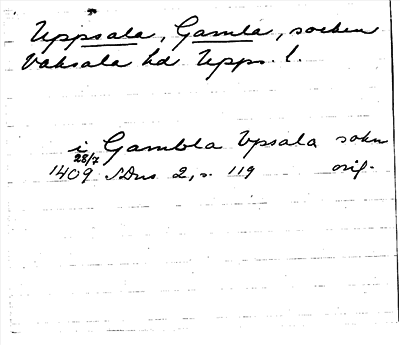 Uppsala, Gamla, socken
Vaksala hd Upps. l.
i Gambla Vpsala sokn
28/7
1409 SDns 2, s. 119 orig.